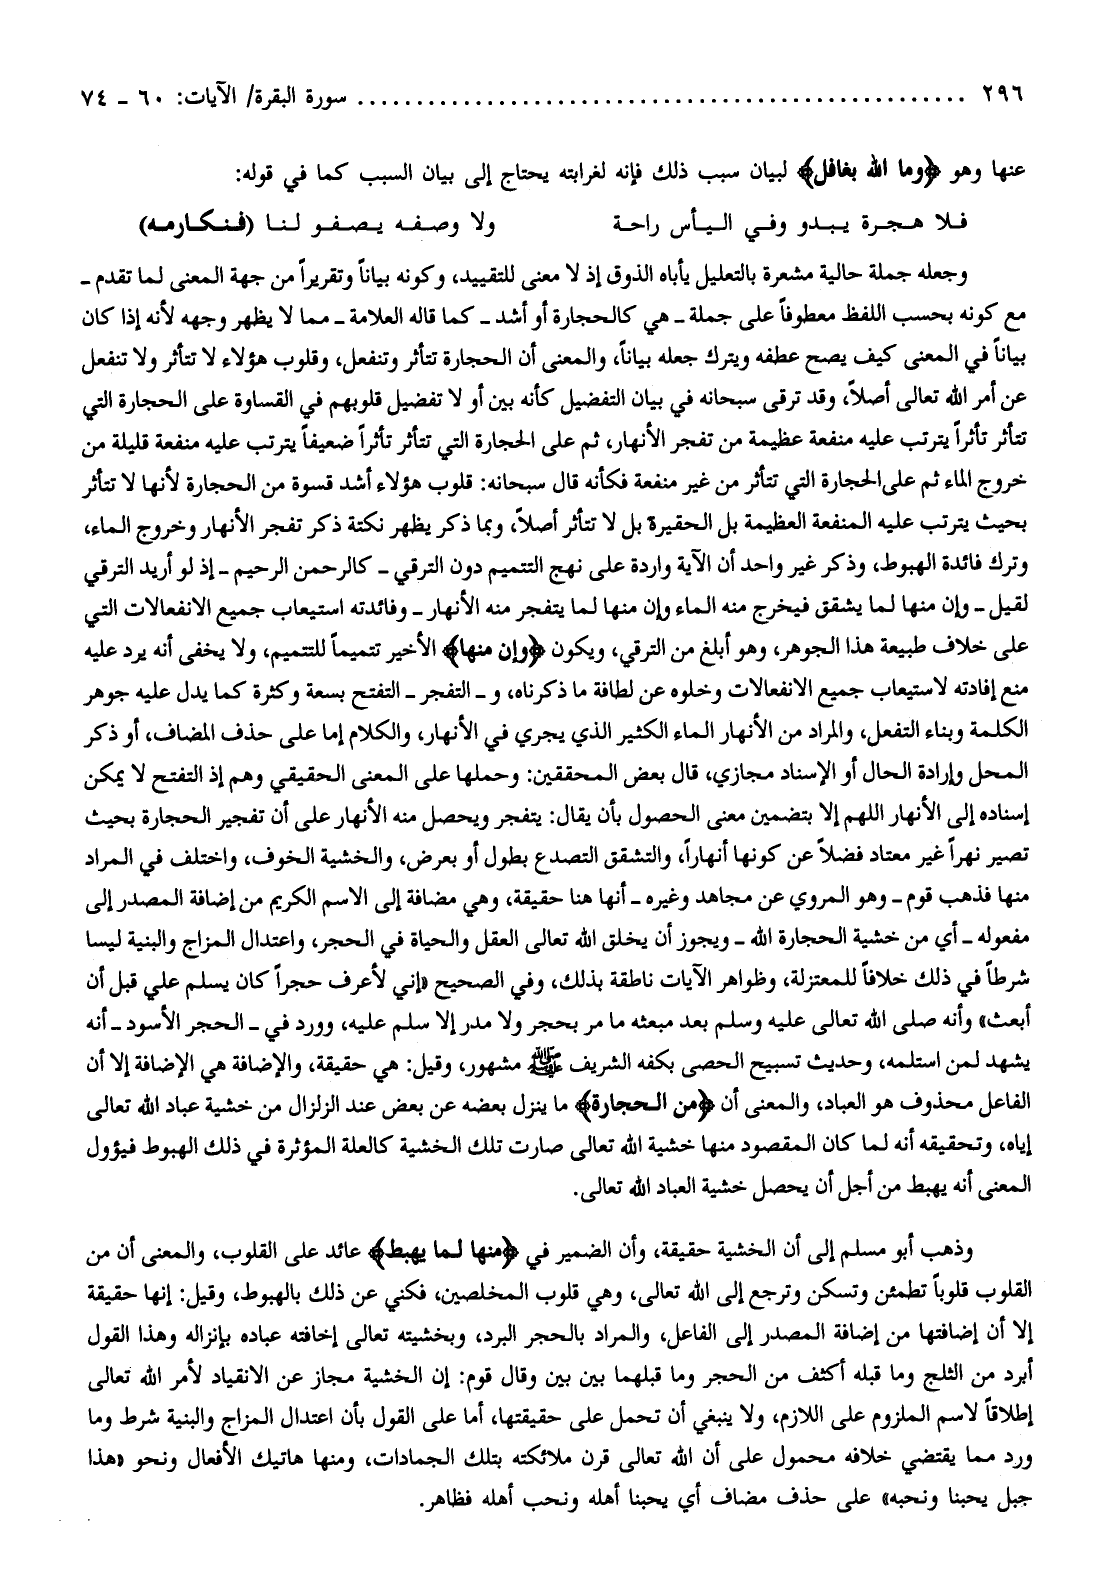 ٢٩٦ .................................................. سورة البقرة/ الآيات: ٦٠ ـ ٧٤
عنها وهو ﴿وما الله بغافل﴾ لبيان سبب ذلك فإنه لغرابته يحتاج إلى بيان السبب كما في قوله:
فـلا هـجـرة يـبـدو وفـي الـيـأس راحـة ولا وصـفـه يـصـفـو لـنـا (فـنـكـارمـه)
وجعله جملة حالية مشعرة بالتعليل يأباه الذوق إذ لا معنى للتقييد، وكونه بياناً وتقريراً من جهة المعنى لما تقدم ـ
مع كونه بحسب اللفظ معطوفاً على جملة ـ هي كالحجارة أو أشد ـ كما قاله العلامة ـ مما لا يظهر وجهه لأنه إذا كان
بياناً في المعنى كيف يصح عطفه ويترك جعله بياناً، والمعنى أن الحجارة تتأثر وتنفعل، وقلوب هؤلاء لا تتأثر ولا تنفعل
عن أمر الله تعالى أصلاً، وقد ترقى سبحانه في بيان التفضيل كأنه بين أو لا تفضيل قلوبهم في القساوة على الحجارة التي
تتأثر تأثراً يترتب عليه منفعة عظيمة من تفجر الأنهار، ثم على الحجارة التي تتأثر تأثراً ضعيفاً يترتب عليه منفعة قليلة من
خروج الماء ثم على الحجارة التي تتأثر من غير منفعة فكأنه قال سبحانه: قلوب هؤلاء أشد قسوة من الحجارة لأنها لا تتأثر
بحيث يترتب عليه المنفعة العظيمة بل الحقيرة بل لا تتأثر أصلاً، وبما ذكر يظهر نكتة ذكر تفجر الأنهار وخروج الماء،
وترك فائدة الهبوط، وذكر غير واحد أن الآية واردة على نهج التتميم دون الترقي ـ كالرحمن الرحيم ـ إذ لو أريد الترقي
لقيل ـ وإن منها لما يشقق فيخرج منه الماء وإن منها لما يتفجر منه الأنهار ـ وفائدته استيعاب جميع الانفعالات التي
على خلاف طبيعة هذا الجوهر، وهو أبلغ من الترقي، ويكون ﴿وإن منها﴾ الأخير تتميماً للتتميم، ولا يخفى أنه يرد عليه
منع إفادته لاستيعاب جميع الانفعالات وخلوه عن لطافة ما ذكرناه، و ـ التفجر ـ التفتح بسعة وكثرة كما يدل عليه جوهر
الكلمة وبناء التفعل، والمراد من الأنهار الماء الكثير الذي يجري في الأنهار، والكلام إما على حذف المضاف، أو ذكر
المحل وإرادة الحال أو الإسناد مجازي، قال بعض المحققين: وحملها على المعنى الحقيقي وهم إذ التفتح لا يمكن
إسناده إلى الأنهار اللهم إلا بتضمين معنى الحصول بأن يقال: يتفجر ويحصل منه الأنهار على أن تفجير الحجارة بحيث
تصير نهراً غير معتاد فضلاً عن كونها أنهاراً، والتشقق التصدع بطول أو بعرض، والخشية الخوف، واختلف في المراد
منها فذهب قوم ـ وهو المروي عن مجاهد وغيره ـ أنها هنا حقيقة، وهي مضافة إلى الاسم الكريم من إضافة المصدر إلى
مفعوله ـ أي من خشية الحجارة الله ـ ويجوز أن يخلق الله تعالى العقل والحياة في الحجر، واعتدال المزاج والبنية ليسا
شرطاً في ذلك خلافاً للمعتزلة، وظواهر الآيات ناطقة بذلك، وفي الصحيح «إني لأعرف حجراً كان يسلم علي قبل أن
أبعث» وأنه صلى الله تعالى عليه وسلم بعد مبعثه ما مر بحجر ولا مدر إلا سلم عليه، وورد في ـ الحجر الأسود ـ أنه
يشهد لمن استلمه، وحديث تسبيح الحصى بكفه الشريف ﷺ مشهور، وقيل: هي حقيقة، والإضافة هي الإضافة إلا أن
الفاعل محذوف هو العباد، والمعنى أن ﴿من الحجارة﴾ ما ينزل بعضه عن بعض عند الزلزال من خشية عباد الله تعالى
إياه، وتحقيقه أنه لما كان المقصود منها خشية الله تعالى صارت تلك الخشية كالعلة المؤثرة في ذلك الهبوط فيؤول
المعنى أنه يهبط من أجل أن يحصل خشية العباد الله تعالى.
وذهب أبو مسلم إلى أن الخشية حقيقة، وأن الضمير في ﴿منها لما يهبط﴾ عائد على القلوب، والمعنى أن من
القلوب قلوباً تطمئن وتسكن وترجع إلى الله تعالى، وهي قلوب المخلصين، فكني عن ذلك بالهبوط، وقيل: إنها حقيقة
إلا أن إضافتها من إضافة المصدر إلى الفاعل، والمراد بالحجر البرد، وبخشيته تعالى إخافته عباده بإنزاله وهذا القول
أبرد من الثلج وما قبله أكثف من الحجر وما قبلهما بين بين وقال قوم: إن الخشية مجاز عن الانقياد لأمر الله تعالى
إطلاقاً لاسم الملزوم على اللازم، ولا ينبغي أن تحمل على حقيقتها، أما على القول بأن اعتدال المزاج والبنية شرط وما
ورد مما يقتضي خلافه محمول على أن الله تعالى قرن ملائكته بتلك الجمادات، ومنها هاتيك الأفعال ونحو «هذا
جبل يحبنا ونحبه» على حذف مضاف أي يحبنا أهله ونحب أهله فظاهر.